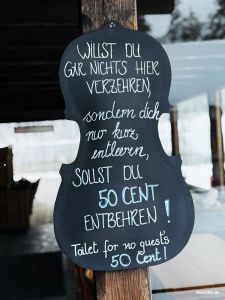 WILLST DU
GAR NICHTS HIER
VERZEHREN,
sondern dich
nur kurz
entleeren,
SOLLST DU
50 CENT
ENTBEHREN!
Toilet for no guest's
50 Cent!